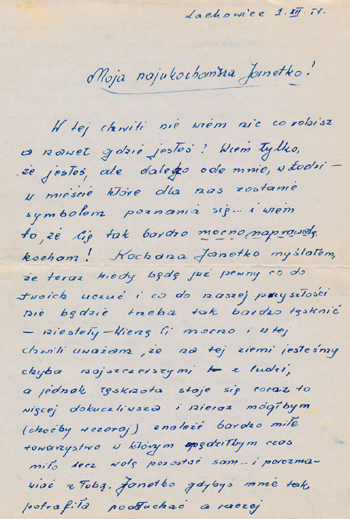 Lachowice 1. XII. 
Moja najukochańsza Janetko!
W tej chwili nie wiem nic co robisz
a nawet gdzie jesteś! Wiem tylko,
że jesteś, ale daleko ode mnie, w Łodzi -
w mieście które dla nas zostanie
symbolem poznania się... i wiem
to, że Cię tak bardzo mocno naprawdę
kocham! Kochana Janetko myślałem,
że teraz kiedy będę już pewny co do
twoich uczuć i co do naszej przyszłości
nie będzie trzeba tak bardzo tęsknić
- niestety - Wierzę Ci mocno i w tej
chwili uważam, że na tej ziemi jesteśmy
chyba najszczerszymi z ludzi,
a jednak tęsknota staje się coraz to
więcej dokuczliwsza i nieraz mógłbym
(choćby wczoraj) znaleźć bardzo miłe
towarzystwo w którym spędziłbym czas
miło lecz wolę pozostać sam - i porozma-
wiać z Tobą. Janetko gdybyś mnie tak
potrafiła podsłuchać a raczej